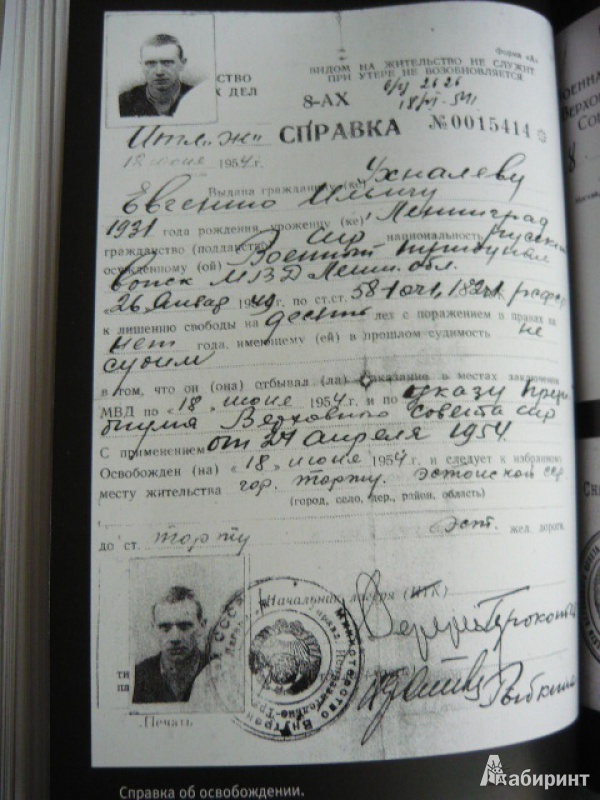 Форма «А»
СТВО
Х ДЕЛ
ВИДОМ НА ЖИТЕЛЬСТВО НЕ СЛУЖИТ
ПРИ УТЕРЕ НЕ ВОЗОБНОВЛЯЕТСЯ
8-АХ
СПРАВКА №0015414
18 июня 1954 г.
Выдана гражданину (ке) Ухналеву
Евгению Ильичу
1931 года рождения, уроженцу (ке) Ленинград
гражданство (подданство) национальность русский
осужденному (ой) Военный трибунал
войск МВД Ленин. обл.
26 январ 1949 г. по ст.ст. 58-1
к лишению свободы на десять лет с поражением в правах на
нет года, имеющему (ей) в прошлом судимость не
судим
в том, что он (она) отбывал (ла) наказание в местах заключения
МВД по «18» июня 1954 г. и по указу Прези
диума Верховного Совета
С применением от 24 апреля 1954
Освобожден (на) «18» июня 1954 г. и следует к избранному
месту жительства гор. Эстонской сср
(город, село, дер., район, область)
до ст. Эст. жел. дорога.
Начальник лагеря (ИТК)
Рыбкина
Печать
Справка об освобождении.
Лабиринт